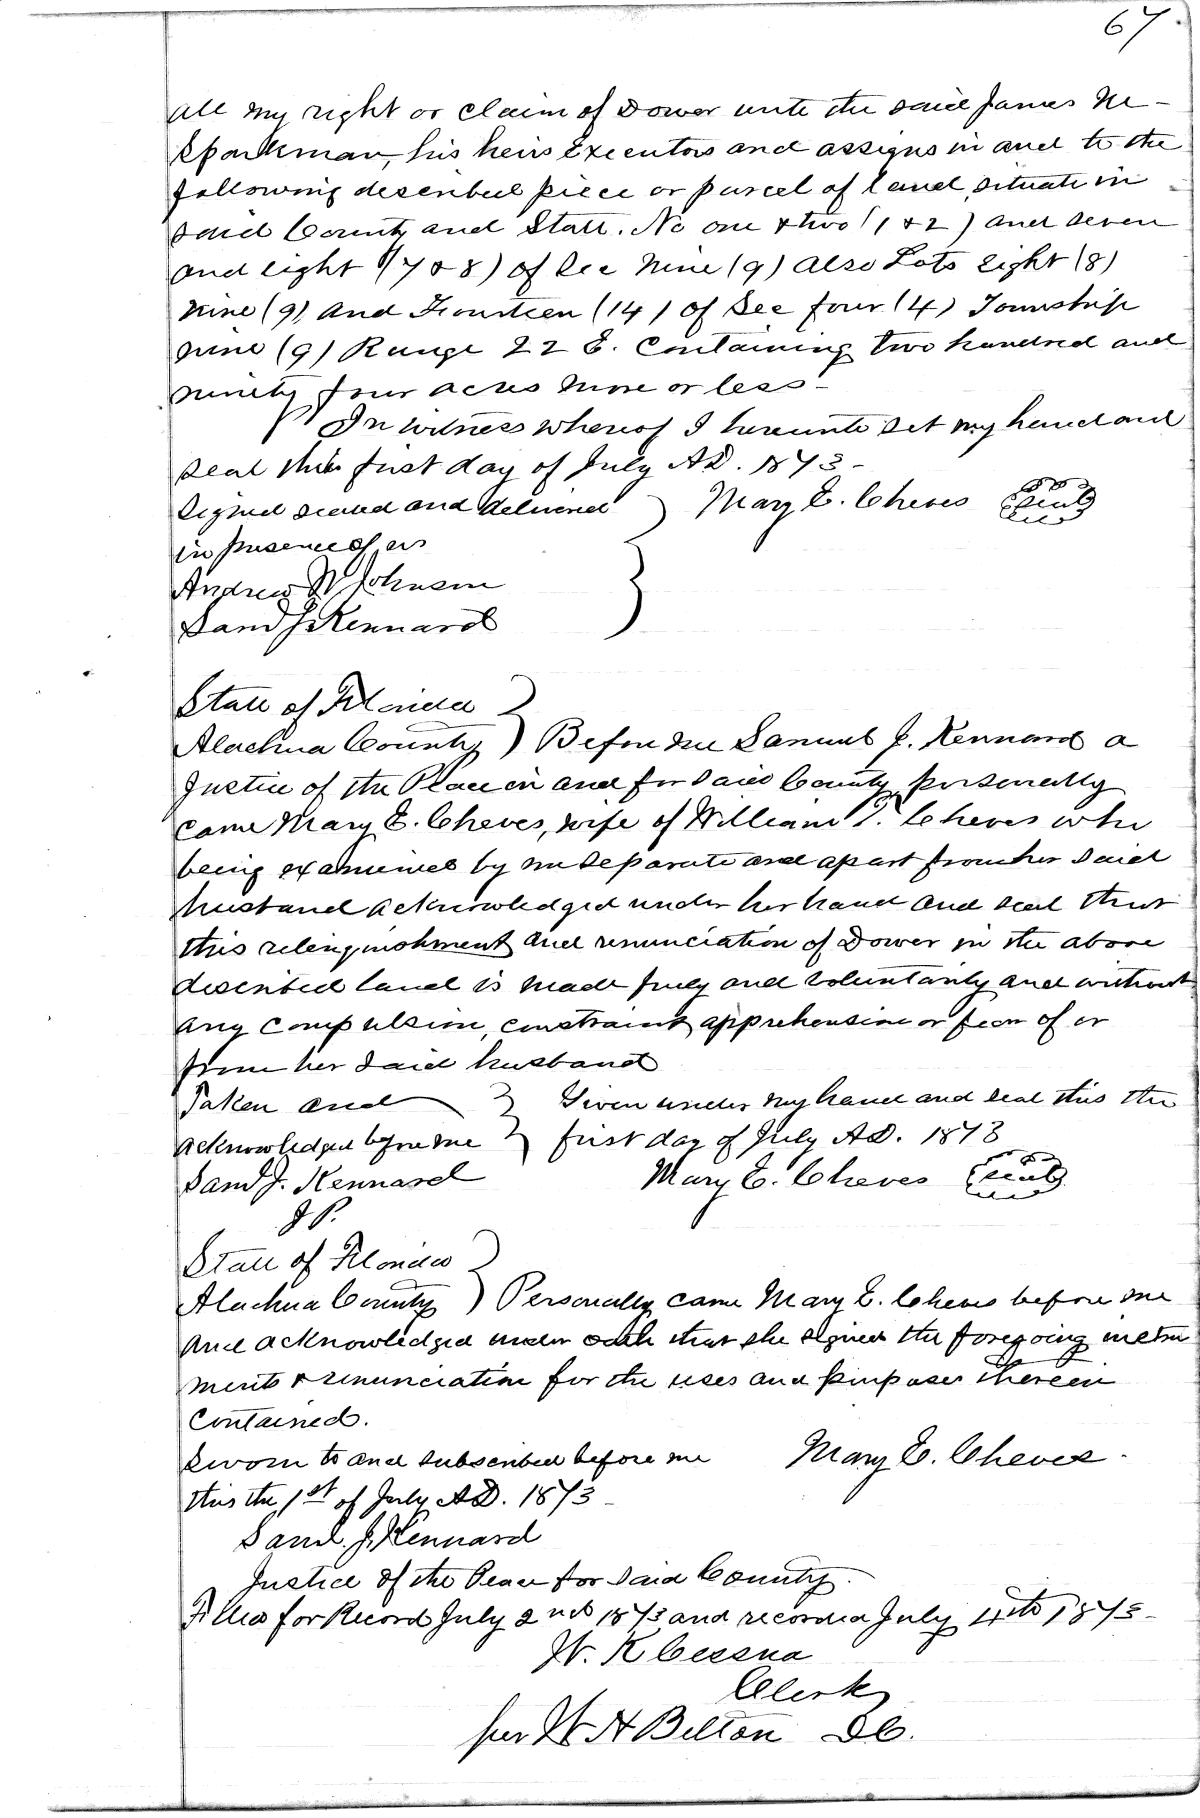 67.
all my right or claim of Dower unto the said James M-
Sparkman, his heirs Executors and assigns in and to the
following described piece or parcel of land, situate in
said County and State. No one & two (1 & 2) and seven
and eight (7 & 8) of Sec Nine (9) Also Lots Eight (8)
Nine (9) and Fourteen (14) of Sec four (4) Township
nine (9) Range 22 E. Containing two hundred and
ninety four acres more or less-
In witness whereof I hereunto set my hand and
seal this first day of July AD. 1873-
Signed sealed and delivered } Mary E. Cheves Seal
in presence of us
Andrew W Johnson
Saml J Kennard
State of Florida }
Alachua County } Before me Samuel J. Kennard a
Justice of the Peace in and for said County personally
came Mary E. Cheves, wife of William T. Cheves who
being examined by me separate and apart from her said
husband acknowledged under her hand and seal that
this relinquishment and renunciation of Dower in the above
described land is made freely and voluntarily and without
any compulsion, constraint, apprehension or fear of or
from her said husband
Taken and } Given under my hand and seal this the
acknowledged before me } first day of July AD. 1873
Saml J. Kennard Mary E. Cheves Seal
J P.
State of Florida }
Alachua County } Personally came Mary E. Cheves before me
and acknowledged under oath that she signed the foregoing instru
ments & renunciation for the uses and purposes therein
contained.
Sworn to and subscribed before me Mary E. Cheves.
this the 1st of July AD. 1873-
Saml. J. Kennard
Justice of the Peace for said County.
Filed for Record July 2nd 1873 and recorded July 4th 1873-
W. K Cessna
Clerk
per W H Belton DC.